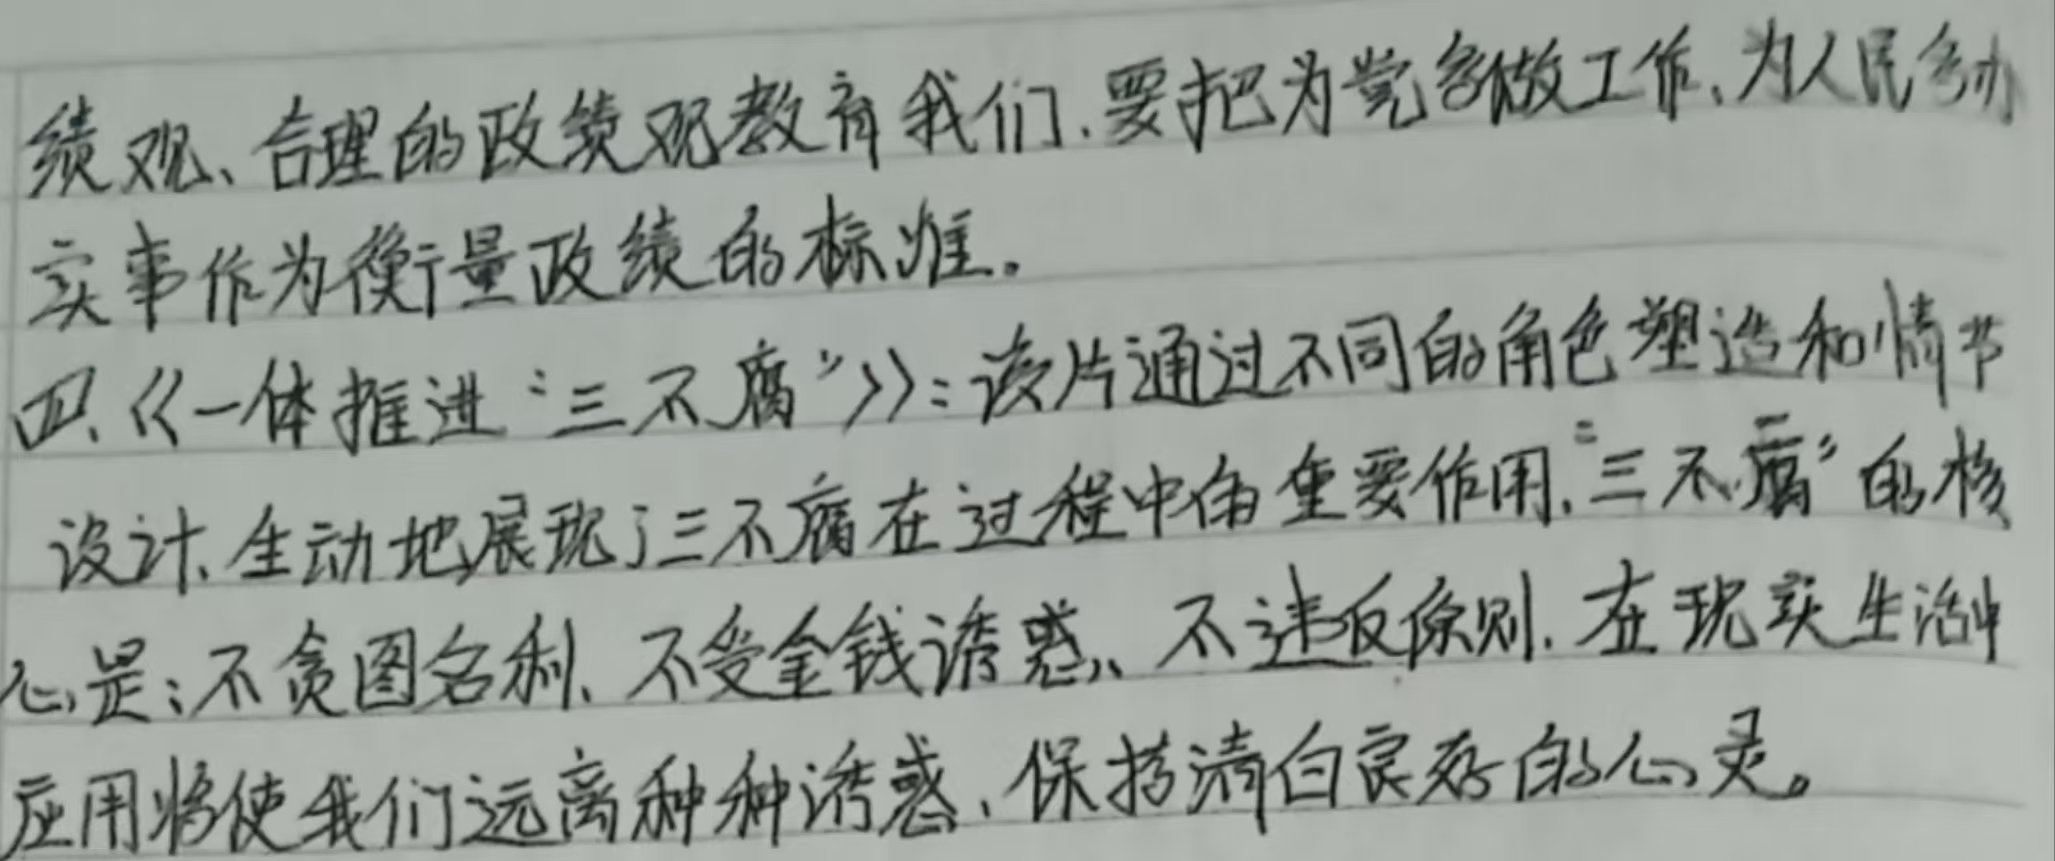 绩观、合理的政绩观教育我们,要把为党多做工作、为人民多办
实事作为衡量政绩的标准。
四、《一体推进“三不腐”》：该片通过不同的角色塑造和情节
设计、生动地展现了三不腐在过程中的重要作用,“三不腐”的核
心是：不贪图名利、不受金钱诱惑、不违反原则,在现实生活中
应用将使我们远离种种诱惑、保持清白良好的心灵。